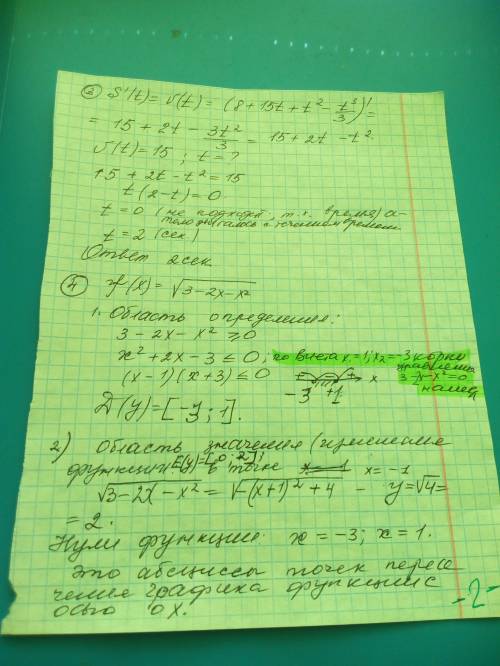 ③ S'(t) = V(t) = (8 + 15t + t² − t³/3)' =
= 15 + 2t − 3t²/3 = 15 + 2t − t².
V(t) = 15 ; t = ?
15 + 2t − t² = 15
t(2 − t) = 0
t = 0 (не подходит, т.к. время) а
тело двигалось с течением времени
t = 2 (сек)
Ответ 2 сек
④ y(x) = √3 − 2x − x²
1. Область определения:
3 − 2x − x² ≥ 0
x² + 2x − 3 ≤ 0; по Виета x₁ = 1; x₂ = −3 корни
уравнения
(x − 1)(x + 3) ≤ 0
x
−3 +1
D(y) = [−3 ; 1].
2) Область значения
функции E(y) = [0; 2]; в точке x = −1
√3 − 2x − x² = √−(x + 1)² + 4 − y = √4 =
= 2.
Нули функции: x = −3; x = 1.
Это абсциссы точек пересе
чения графика функции с
осью ox.
-2-